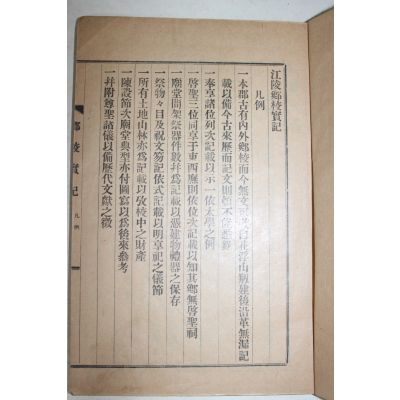 江陵鄕校實記
凡例
一本郡古有內外鄕校而今無文可考自花浮山剏建後沿革無漏記
載以備今古來歷而記文則
一奉享諸位列次記載以示一依太學之例
一啓聖三位同享于東西廡則依位次記載以知其鄕無啓聖祠
一廟堂間架祭器件數并爲記載以憑建物禮器之保存
一祭物名目及祝文笏記依式記載以明享祀之儀節
一所有土地山林亦爲記載以攷校中之財產
一陳設節次廟堂典型亦付圖寫以爲後來參考
一并附尊聖諸儀以備歷代文獻之徵
鄕校實記 凡例